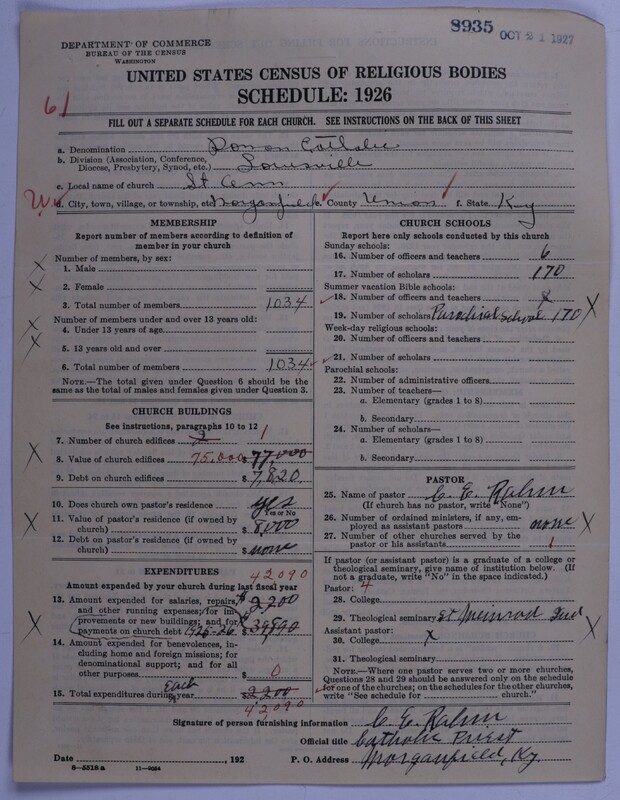 8935 OCT 21 1927
DEPARTMENT OF COMMERCE
BUREAU OF THE CENSUS
WASHINGTON
UNITED STATES CENSUS OF RELIGIOUS BODIES
SCHEDULE: 1926
61
FILL OUT A SEPARATE SCHEDULE FOR EACH CHURCH. SEE INSTRUCTIONS ON THE BACK OF THIS SHEET
a. Denomination Roman Catholic
b. Division (Association, Conference,
Diocese, Presbytery, Synod, etc.) Louisville
c. Local name of church St Ann
d. City, town, village, or township, etc. Morganfield e. County Union f. State Ky
MEMBERSHIP
Report number of members according to definition of
member in your church
Number of members, by sex:
1. Male
2. Female
3. Total number of members 1034
Number of members under and over 13 years old:
4. Under 13 years of age
5. 13 years old and over
6. Total number of members 1034
NOTE.—The total given under Question 6 should be the
same as the total of males and females given under Question 3.
CHURCH BUILDINGS
See instructions, paragraphs 10 to 12
7. Number of church edifices 2 1
8. Value of church edifices 75.000 $ 77,000
9. Debt on church edifices $ 7,820
10. Does church own pastor's residence yes
Yes or No
11. Value of pastor's residence (if owned by
church) $ 8,000
12. Debt on pastor's residence (if owned by
church) $ none
EXPENDITURES
42090
Amount expended by your church during last fiscal year
13. Amount expended for salaries, repairs, $ 2,200
and other running expenses; for im-
provements or new buildings; and for
payments on church debt 1925-26 $ 39,890
14. Amount expended for benevolences, in-
cluding home and foreign missions; for
denominational support; and for all
other purposes $ 0
15. Total expenditures during Each year $ 2200
42090
CHURCH SCHOOLS
Report here only schools conducted by this church
Sunday schools:
16. Number of officers and teachers 6
17. Number of scholars 170
Summer vacation Bible schools:
18. Number of officers and teachers
19. Number of scholars Parochial School 170
Week-day religious schools:
20. Number of officers and teachers
21. Number of scholars
Parochial schools:
22. Number of administrative officers
23. Number of teachers—
a. Elementary (grades 1 to 8)
b. Secondary
24. Number of scholars—
a. Elementary (grades 1 to 8)
b. Secondary
PASTOR
25. Name of pastor C. E. Rahm
(If church has no pastor, write "None")
26. Number of ordained ministers, if any, em-
ployed as assistant pastors none
27. Number of other churches served by the
pastor or his assistants 1
If pastor (or assistant pastor) is a graduate of a college or
theological seminary, give name of institution below. (If
not a graduate, write "No" in the space indicated.)
Pastor:
28. College
29. Theological seminary St Meinrad Ind
Assistant pastor:
30. College x
31. Theological seminary
NOTE.—Where one pastor serves two or more churches,
Questions 28 and 29 should be answered only on the schedule
for one of the churches; on the schedules for the other churches,
write "See schedule for church."
Signature of person furnishing information C. E. Rahm
Official title Catholic Priest
Date , 192 P. O. Address Morganfield, Ky
8—5518 a 11—9054